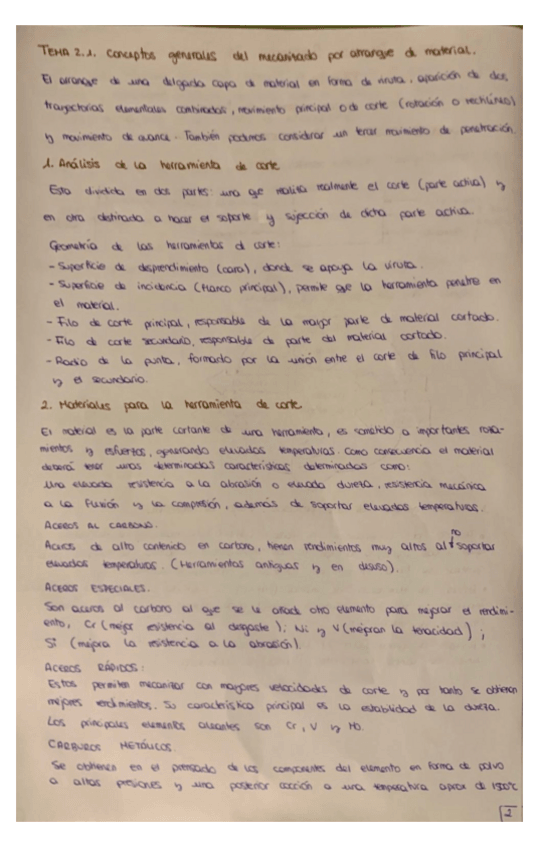 TEMA 2.1. Conceptos generales del mecanizado por arranque de material.
El arranque de una delgada capa de material en forma de viruta, aparición de dos
trayectorias elementales combinadas, movimiento principal o de corte (rotación o rectilíneo)
y movimiento de avance. También podemos considerar un tercer movimiento de penetración.
1. Análisis de la herramienta de corte
Esta dividida en dos partes: una que realiza realmente el corte (parte activa) y
en otra destinada a hacer el soporte y sujección de dicha parte activa.
Geometría de las herramientas d corte:
- Superficie de desprendimiento (cara), donde se apoya la viruta.
- Superficie de incidencia (flanco principal), permite que la herramienta penetre en
el material.
- Filo de corte principal, responsable de la mayor parte de material cortado.
- Filo de corte secundario, responsable de parte del material cortado.
- Radio de la punta, formado por la unión entre el corte de filo principal
y el secundario.
2. Materiales para la herramienta de corte
El material es la parte cortante de una herramienta, es sometido a importantes roza-
mientos y esfuerzos, generando elevadas temperaturas. Como consecuencia el material
deberá tener unas determinadas características determinadas como:
Una elevada resistencia a la abrasión o elevada dureza, resistencia mecánica
a la fluxión y la compresión, además de soportar elevadas temperaturas.
ACEROS AL CARBONO.
Aceros de alto contenido en carbono, tienen rendimientos muy altos al no soportar
elevadas temperaturas. (Herramientas antiguas y en desuso).
ACEROS ESPECIALES.
Son aceros al carbono al que se le añade otro elemento para mejorar el rendimi-
ento, Cr (mejor resistencia al desgaste); Ni y V (mejoran la tenacidad);
Si (mejora la resistencia a la abrasión).
ACEROS RÁPIDOS:
Estos permiten mecanizar con mayores velocidades de corte y por tanto se obtienen
mejores rendimientos. Su característica principal es la estabilidad de la dureza.
Los principales elementos aleantes son Cr, V y Mo.
CARBUROS METÁLICOS
Se obtienen en el prensado de los componentes del elemento en forma de polvo
a altas presiones y una posterior cocción a una temperatura aprox de
2